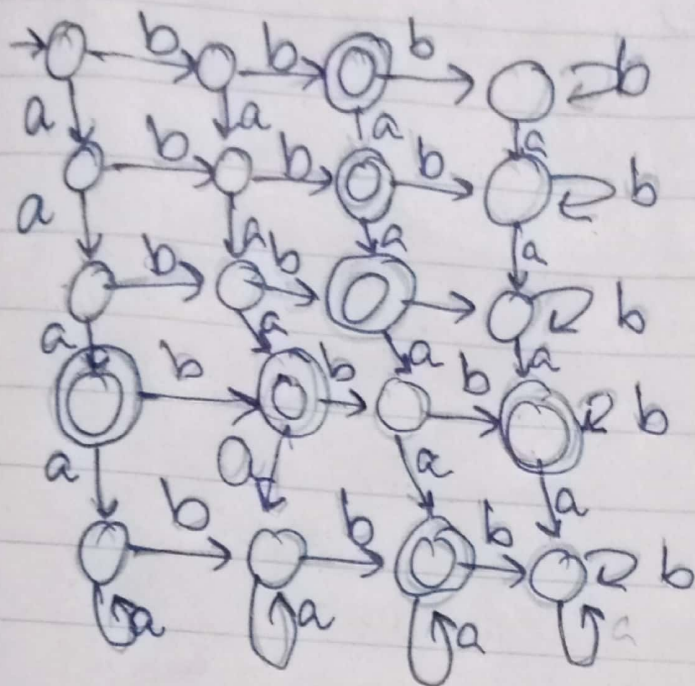 b b b b
a a a a
b b b b
a a a a
b b b
a a a a
b b b b
a a a a
b b b b
a a a a